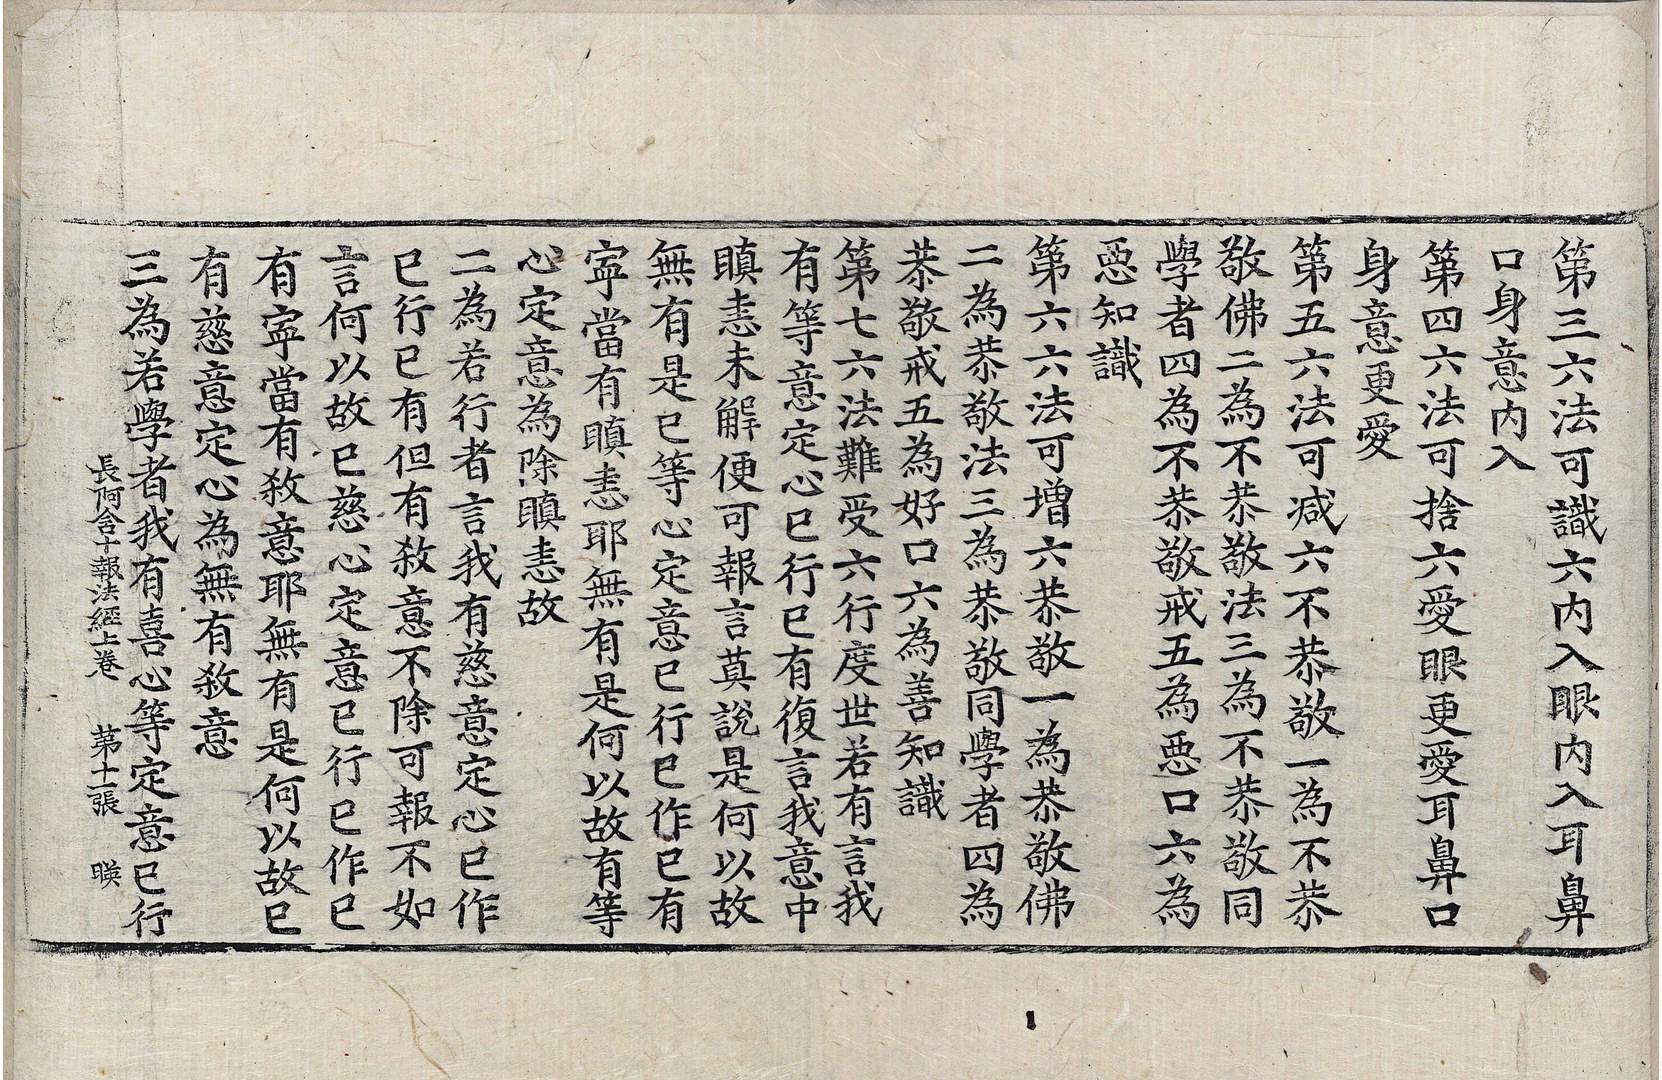 第三六法可識六内入眼内入耳鼻
口身意内入
第四六法可捨六愛眼更愛耳鼻口
身意更愛
第五六法可减六不恭敬一為不恭
敬佛二為不恭敬法三為不恭敬同
學者四為不恭敬戒五為惡口六為
惡知識
第六六法可增六恭敬一為恭敬佛
二為恭敬法三為恭敬同學者四為
恭敬戒五為好口六為善知識
第七六法難受六行度世若有言我
有等意定心已行已有復言我意中
瞋恚未解便可報言莫說是何以故
無有是已等心定意已行已作已有
寧當有瞋恚耶無有是何以故有等
心定意為除瞋恚故
二為若行者言我有慈意定心已作
已行已有但有殺意不除可報不如
言何以故已慈心定意已行已作已
有寧當有殺意耶無有是何以故已
有慈意定心為無有殺意
三為若學者我有喜心等定意已行
長阿含十報法經上卷 第十一張 暎